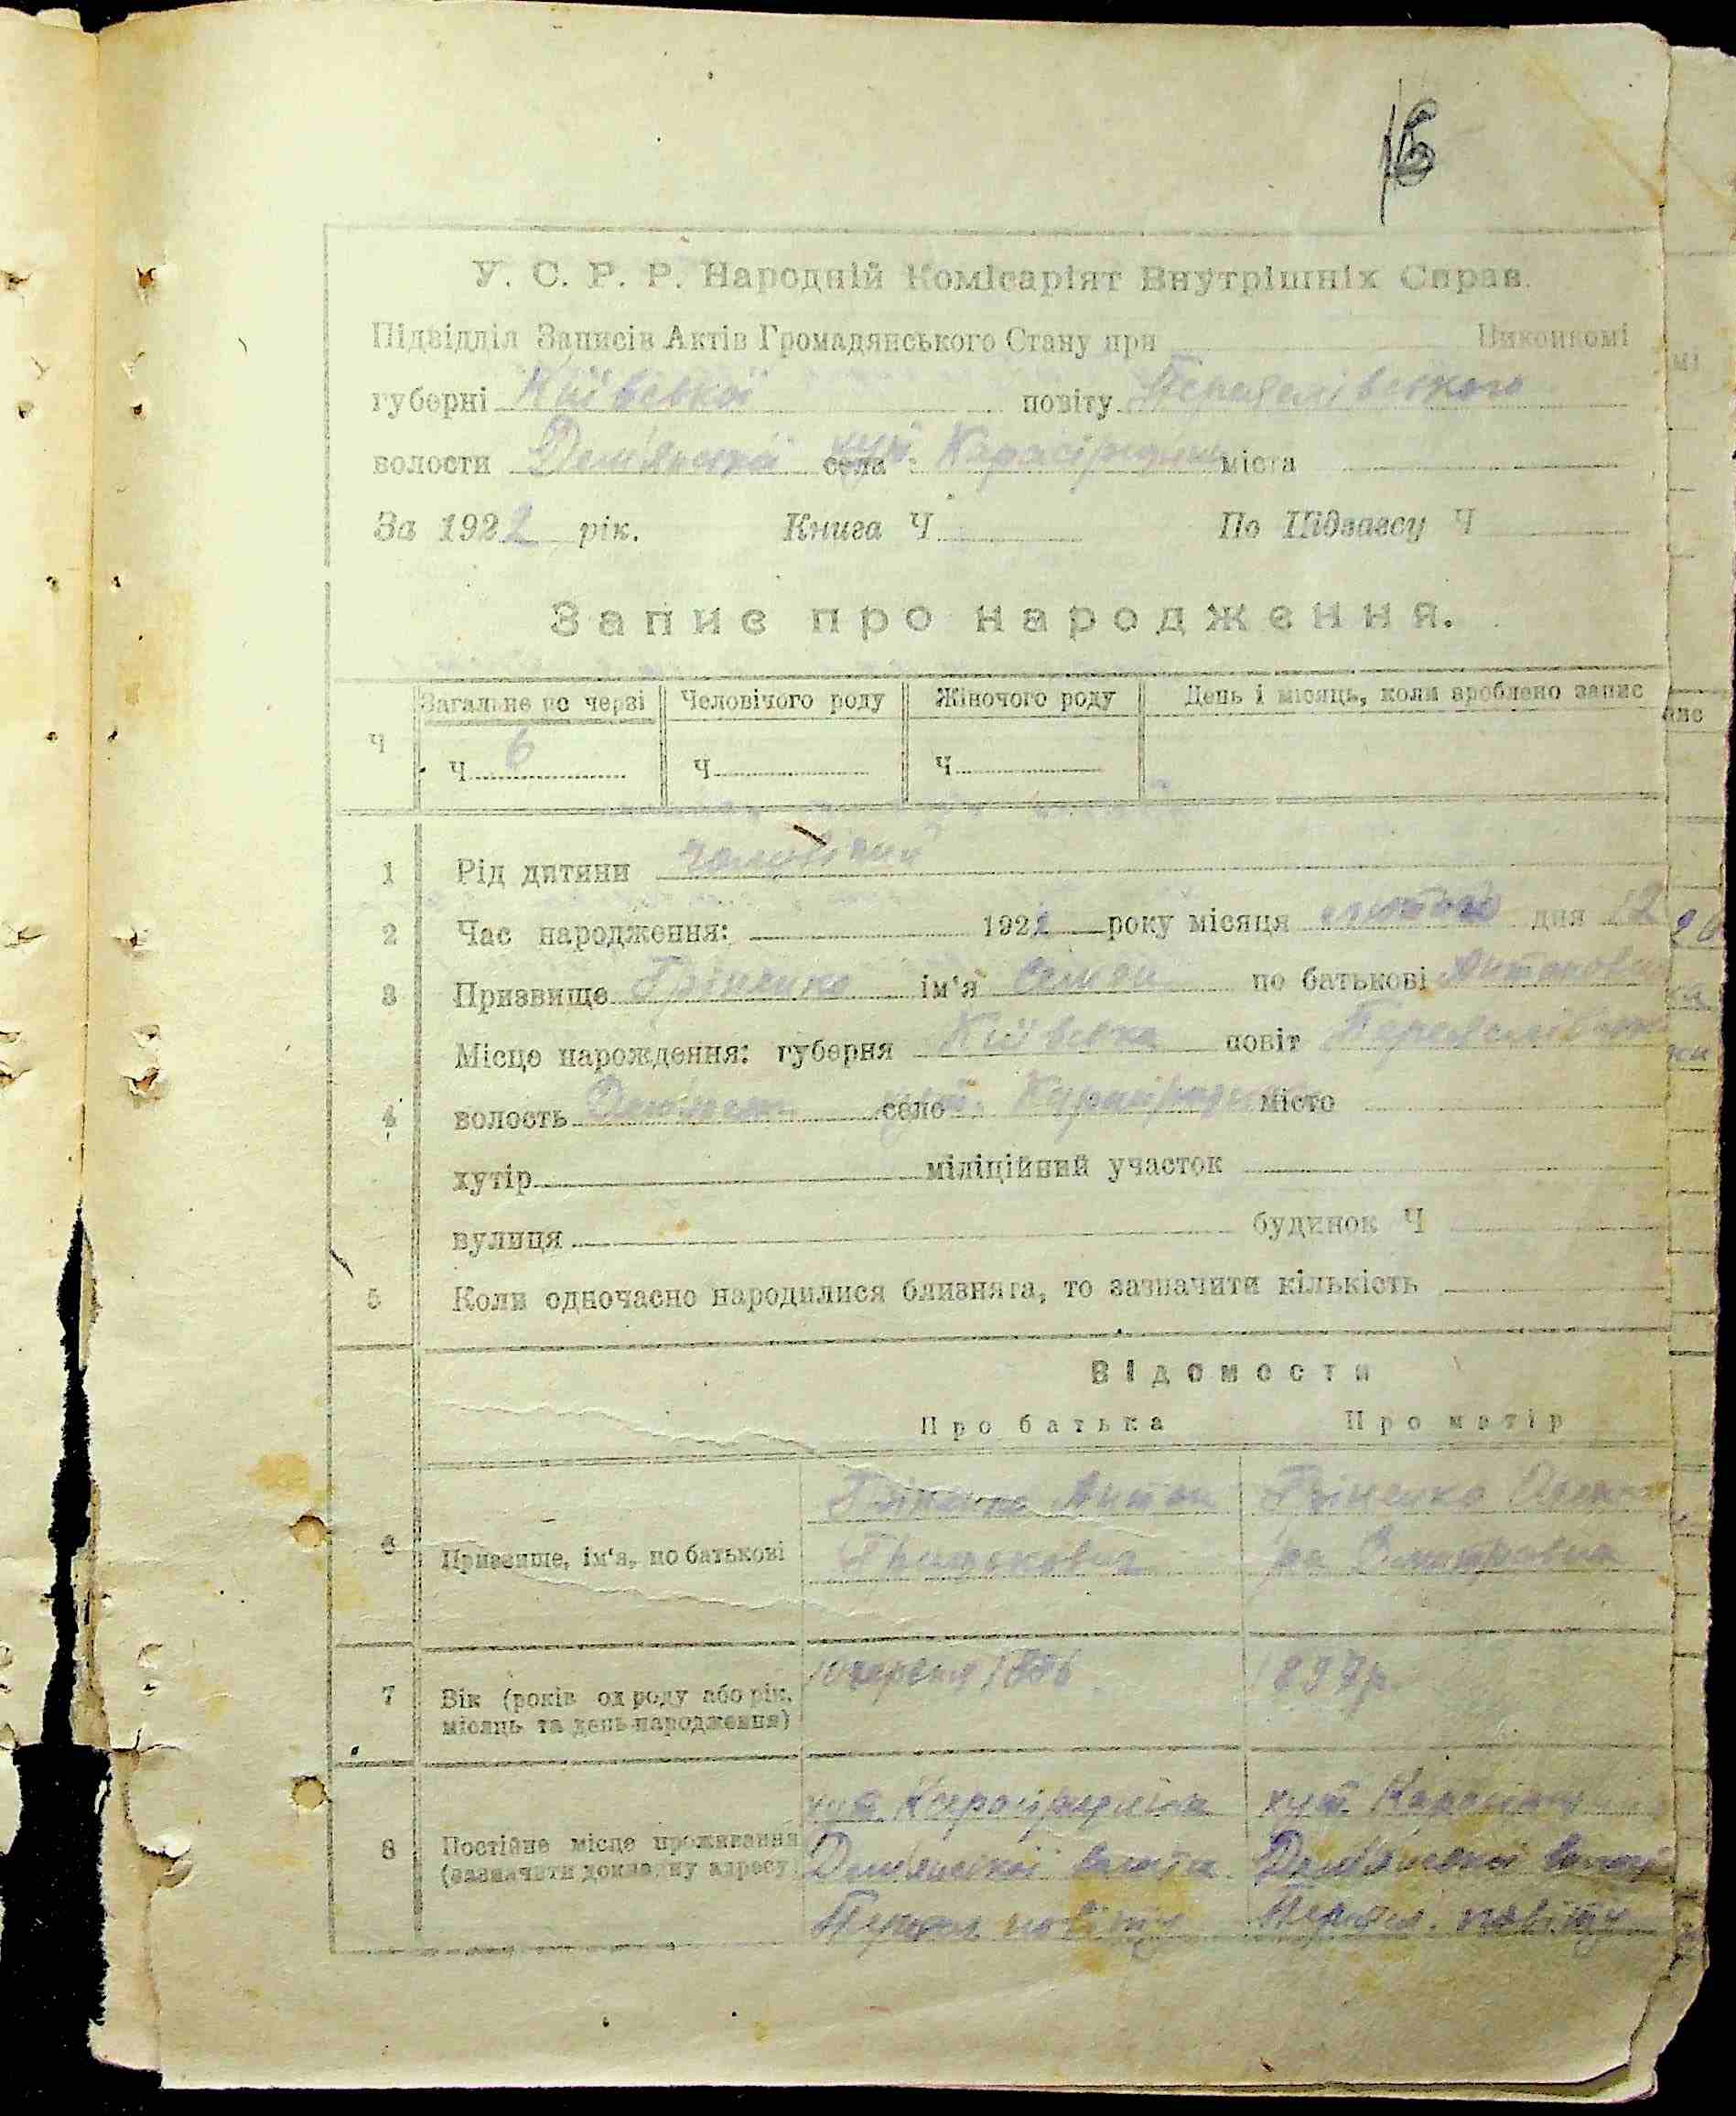 16
У. С. Р. Р. Народній Комісаріят Внутрішніх Справ.
Підвідділ Записів Актів Громадянського Стану при Виконкомі
губерні Київської повіту Переяслівського
волости Дем'янської села хут. міста
За 1922 рік. Книга Ч По Підзагсу Ч
Запис про народження.
Загальне по черзі Человічого роду Жіночого роду День і місяць, коли зроблено запис
Ч Ч 6 Ч Ч
1 Рід дитини чоловічий
2 Час народження: 1922 року місяця лютого дня 12
3 Призвище Грінченко ім'я Семен по батькові Антонович
Місце нарождення: губерня Київська повіт Переяслівський
4 волость село хут. місто
хутір міліційний участок
вулиця будинок Ч
5 Коли одночасно народилися близнята, то зазначити кількість
Відомости
Про батька Про матір
Антон Грінченко
6 Призвище, ім'я, по батькові Дмитровна
7 Вік (років од роду або рік, 10 червня 1886 1897р.
місяць та день народження)
хут. хут.
8 Постійне місце проживання Дем'янської волости Дем'янської волости
(зазначити докладну адресу) Переясл. повіту Переясл. повіту